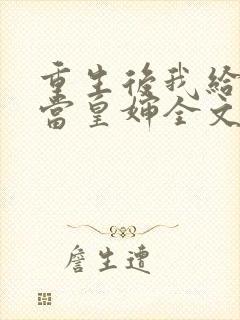 重生後我給
當皇婶全文
詹生遭